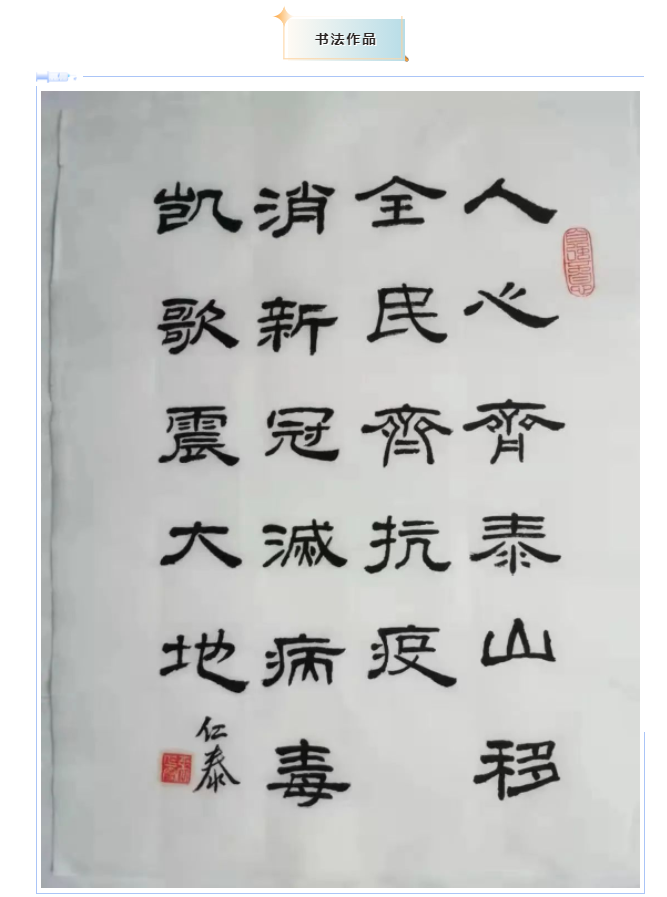 书法作品
人心齊泰山移
全民齊抗疫
消新冠滅病毒
凯歌震大地
仁泰